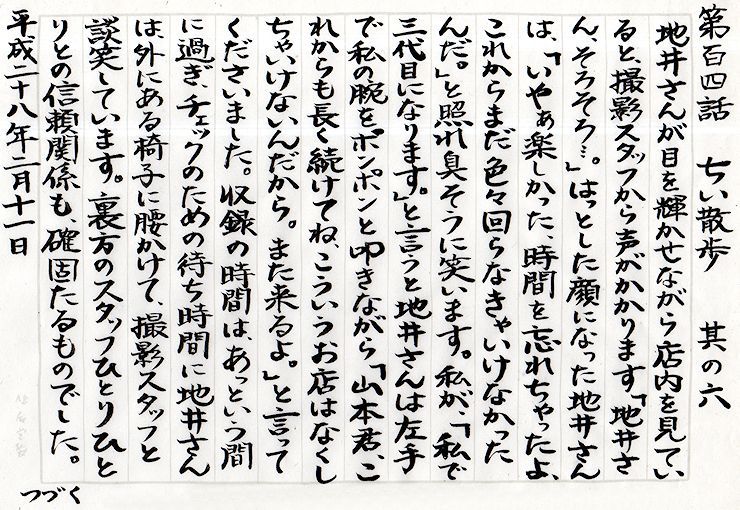 第百四話　ちい散歩　　其の六
地井さんが目を輝かせながら店内を見てい
ると、撮影スタッフから声がかかります「地井さ
ん、そろそろ…。」はっとした顔になった地井さん
は、「いやぁ楽しかった、時間を忘れちゃったよ、
これからまだ色々回らなきゃいけなかった
んだ。」と照れ臭そうに笑います。私が、「私で
三代目になります。」と言うと地井さんは左手
で私の腕をポンポンと叩きながら「山本君、こ
れからも長く続けてね、こういうお店はなくし
ちゃいけないんだから。また来るよ。」と言って
くださいました。収録の時間は、あっという間
に過ぎ、チェックのための待ち時間に地井さん
は、外にある椅子に腰かけて、撮影スタッフと
談笑しています。裏方のスタッフひとりひと
りとの信頼関係も、確固たるものでした。
平成二十八年二月十一日
つづく